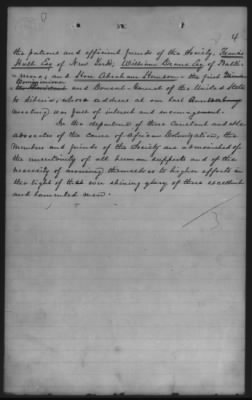 4
the patrons and efficient friends of the Society, Francis
Hall Esq of New York, William Crane Esq of Balti-
more, and Hon Abraham Hanson - the first
Commissioner and Consul-General of the United States
to Liberia, whose address at our last Anniversary
meeting was full of interest and encouragement.
In the departure of these constant and able
advocates of the cause of African Colonization, the
Members and friends of the Society are admonished of
the uncertainty of all human supports and of the
necessity of themselves to higher efforts in
the light of the ever shining glory of these excellent
and lamented men.